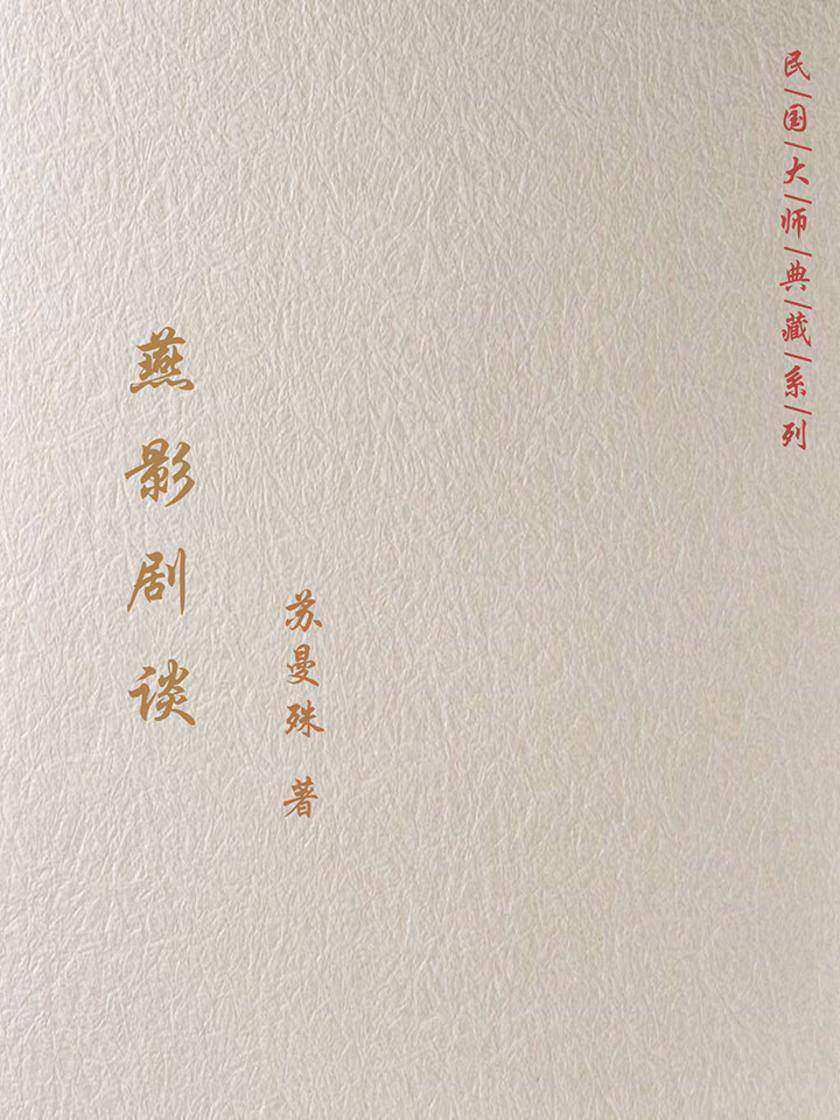 民/国/大/师/典/藏/系/列
苏曼殊 著
燕影剧谈